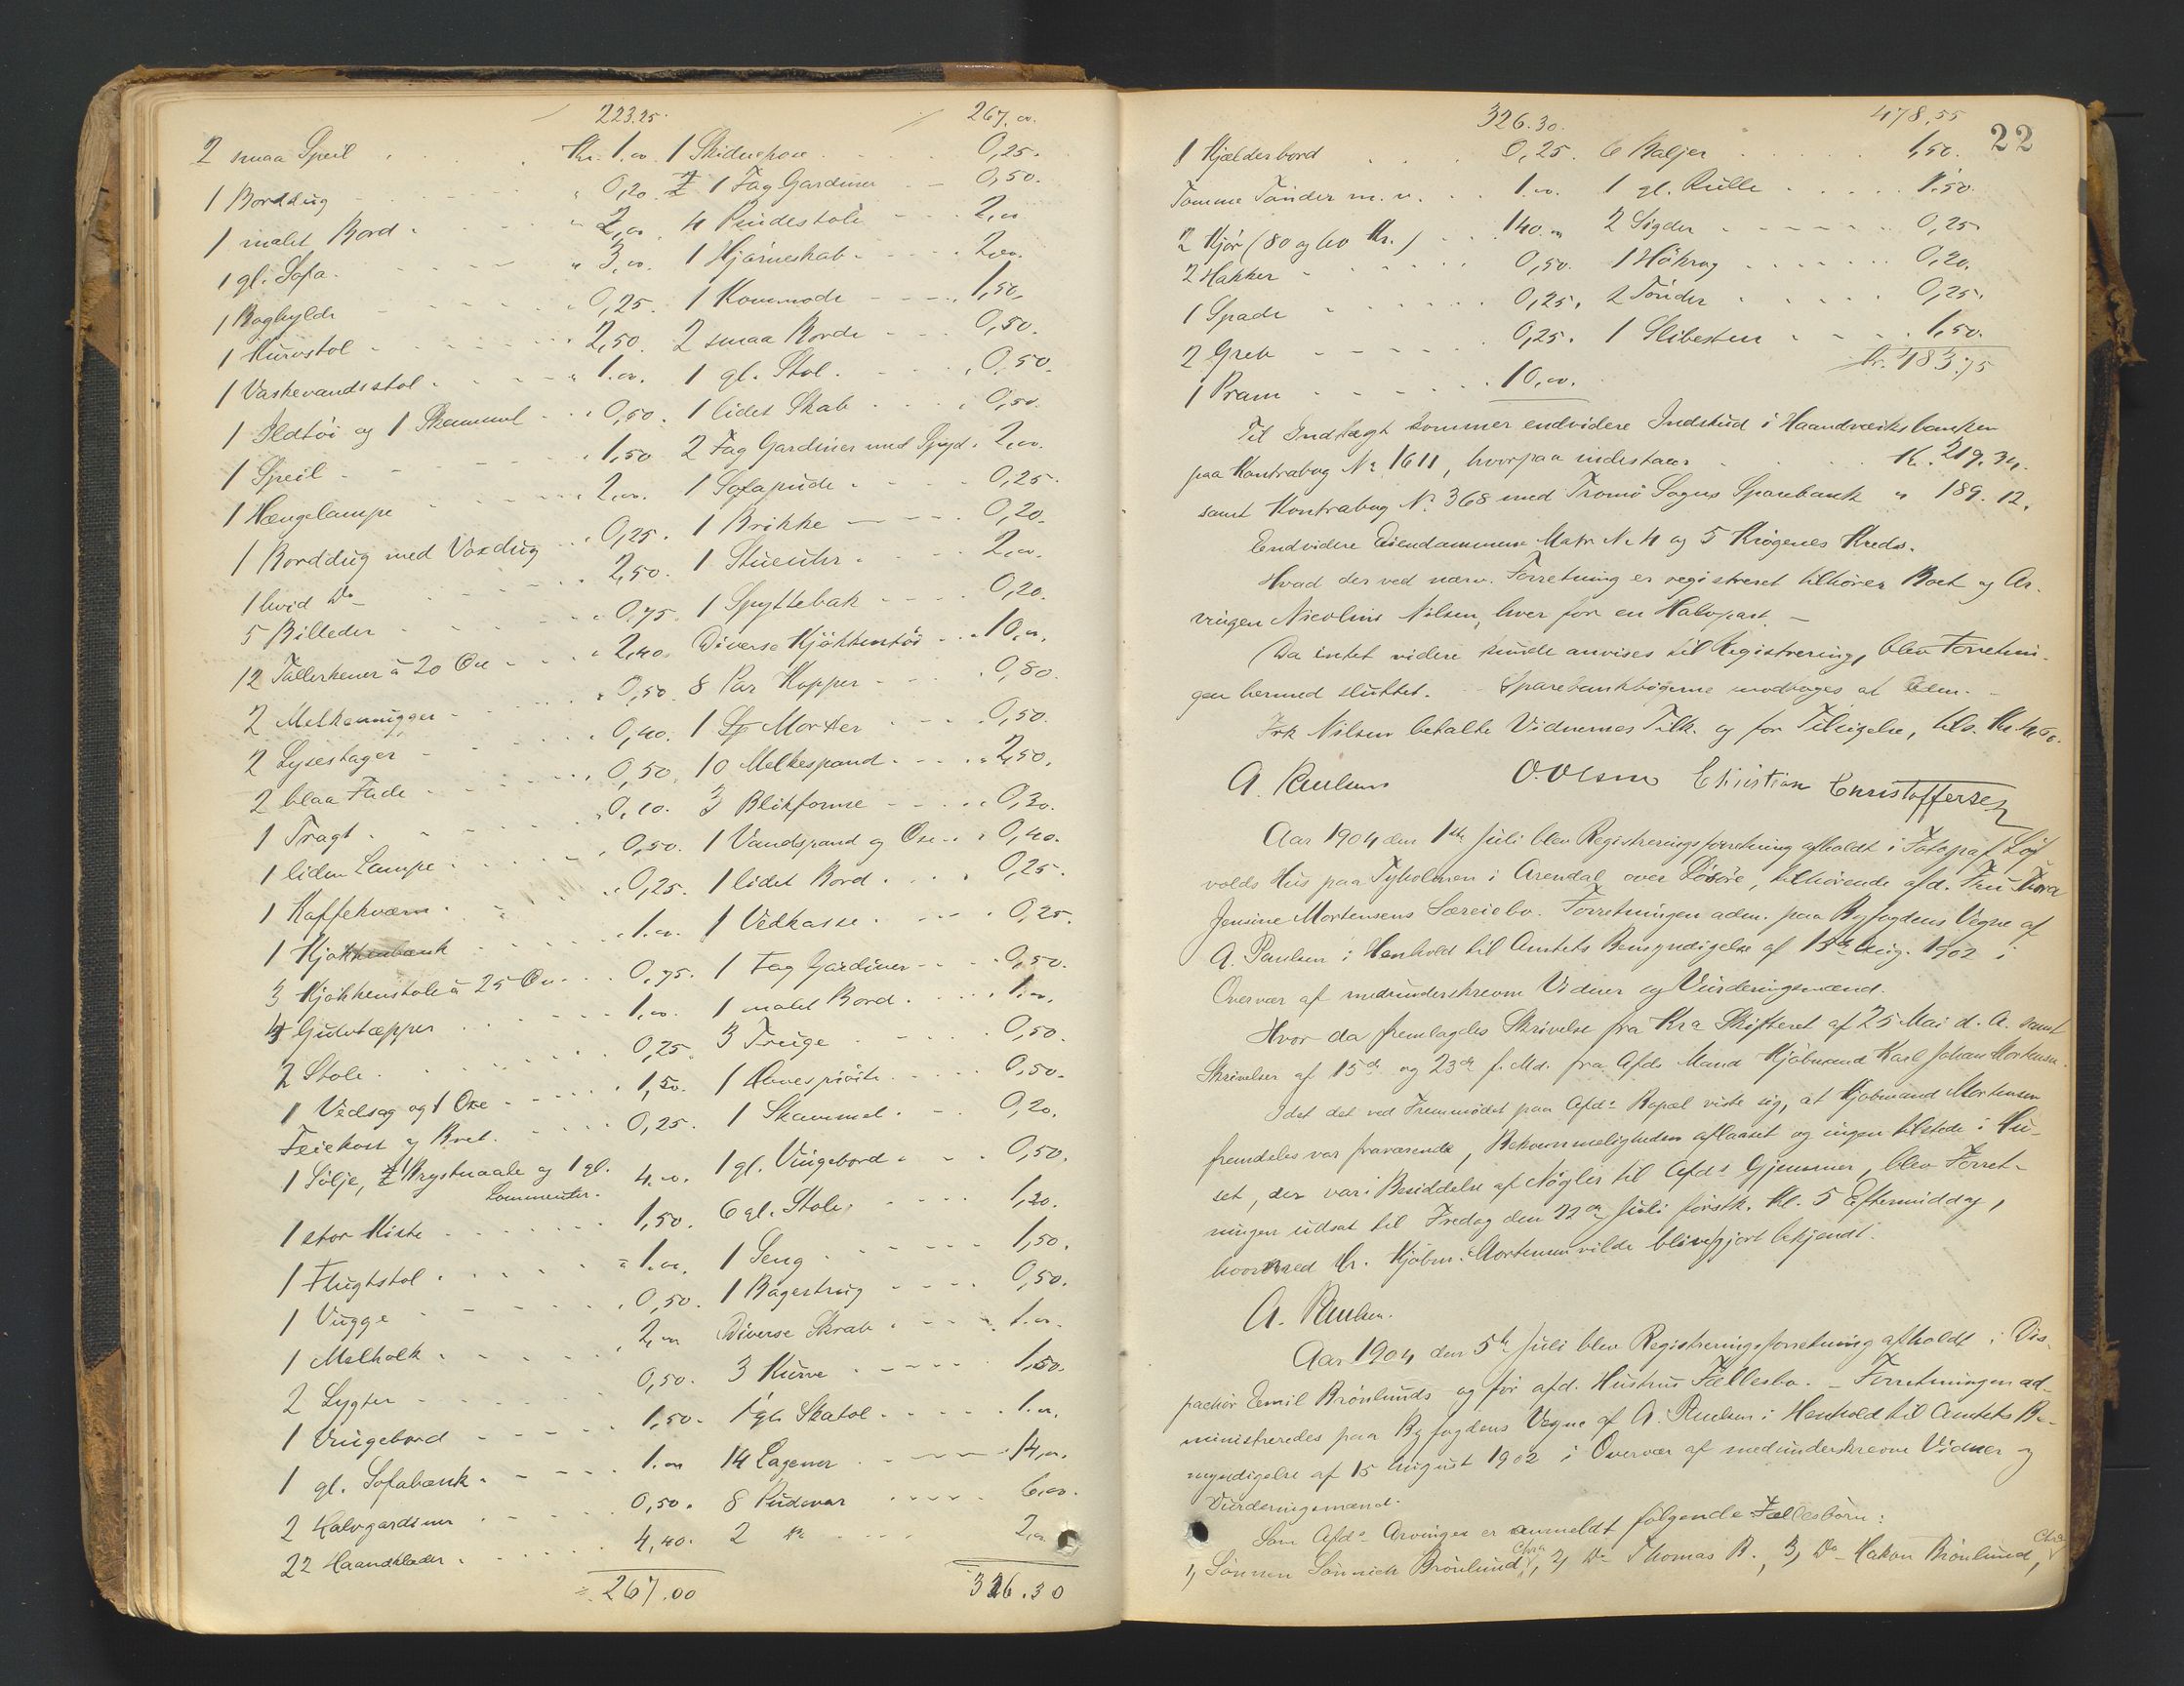 223.25.
2 smaa Speil Kr. 1.00
1 Borddug " 0,20
1 malet Bord " 2,00
1 gl. Sofa " 3,00
1 Boghylde 0,25
1 Kurvstol 2,50
1 Vaskevandsstol 1.00
1 Ildtöi og 1 Skammel 0,50
1 Speil 1,50
1 Hængelampe 2,00
1 Borddug med Voxdug 0,25
1 hvid Do 2,50
5 Billeder 0,75
12 Tallerkener à 20 Øre 2,40
2 Melkemugger 0,50
2 Lysestager 0,40
2 blaa Fade 0,50
1 Tragt 0,10
1 liden Lampe 0,50
1 Kaffekværn 0,25
1 Kjøkkenbænk 1.00
3 Kjökkenstole à 25 Øre 0,75
4 Gulvtæpper 1,00
2 Stole 0,25
1 Vedsag og 1 Oxe 1,50
Feiekost og Bret 0,25
1 Sölje, 2 Brystnaale og 1 gl. Lommeuhr. 4.00
1 stor Kiste 1,50
1 Flugtstol 1.00
1 Vugge 0,50
1 Melholk 2,00
2 Lygter 0,50
1 Vingebord 1,50
1 gl. Sofabænk 1.00
2 Halvgardiner 0,50
22 Haandklæder 4,40
267.00
267.00
1 Skidnepose 0,25
1 Fag Gardiner 0,50
4 Pindestole 2,00
1 Hjörneskab 2,00
1 Kommode 1,50
2 smaa Borde 0,50
1 gl. Stol 0,50
1 lidet Skab 0,50
2 Fag Gardiner med Spyd 2,00
1 Sofapude 0,25
1 Brikke 0,20
1 Stueuhr 2,00
1 Spyttebak 0,20
Diverse Kjökkentöi 10,00
8 Par Kopper 0,80
1 Morter 0,50
10 Melkespand 2,50
3 Blikforme 0,30
1 Vandspand og Øse 0,40
1 lidet Bord 0,25
1 Vedkasse 0,25
1 Fag Gardiner 0,50
1 malet Bord 1.00
3 Truge 0,50
1 0,50
1 Skammel 0,20
1 gl. Vingebord 0,50
6 gl. Stole 1,20
1 Seng 1,50
1 Bagestrug 0,50
Diverse Skrab 1.00
3 Kurve 1,50
1 gl. Skatol 1.00
14 Lagener 14,00
8 Pudevar 6,00
2 Do 2,00
326.30
22
326.30.
1 Kjælderbord 0,25
Tomme Tönder m. v. 1.00
2 Kjör (80 og 60 Kr.) 140.00
2 Hakker 0,50
1 Spade 0,25
2 Greb 0,25
1 Pram 10,00
478,55
6 Baljer 1,50
1 gl. Rulle 1.50
2 Sigder 0,25
1 Hökrog 0,20
2 Tönder 0,25
1 Slibesten 1,50
Kr. 483.75
Til Indtægt kommer endvidere Indskud i Haandværksbanken
paa Kontrabog No 1611, hvorpaa indestaar Kr. 219.34.
samt Kontrabog No 368 med Tromö Sogns Sparebank " 189.12.
Endvidere Eiendommene Matr. No 4 og 5 Krögenes Kreds.
Hvad der ved nærv. Forretning er registreret tilhörer Boet og Ar-
vingen Nicoline Nilsen, hver for en Halvpart. –
Da intet videre kunde anvises til Registrering, blev Forretnin-
gen hermed sluttet. – Sparebankbögerne modtoges af Adm. –
Frk Nilsen betalte Vidnernes Tilk. og for Tilsigelse, tils. Kr. 4,60.
A. Paulsen O. Olsen Christian Christoffersen
Aar 1904 den 1ste Juli blev Registreringsforretning afholdt i Fotograf Löf
volds Hus paa Tyholmen i Arendal over Lösöre, tilhörende afd. Fru Thora
Jensine Mortensens Særeiebo. Forretningen adm. paa Byfogdens Vegne af
A. Paulsen i Henhold til Amtets Bemyndigelse af 15de Aug. 1902 i
Overvær af medunderskrevne Vidner og Vurderingsmænd.
Hvor da fremlagdes Skrivelse fra Kra Skifteret af 25 Mai d. A. samt
Skrivelser af 15de og 23de f. Md. fra Afds Mand Kjöbmand Karl Johan Mortensen.
Idet det ved Fremmödet paa Afds Bopæl viste sig, at Kjöbmand Mortensen
fremdeles var fraværende, Bekvemmeligheden aflaaset og ingen tilstede i Hu-
set, der var i Besiddelse af Nögler til Afds Gjemmer, blev Forret-
ningen udsat til Fredag den 22de Juli förstk. Kl. 5 Eftermiddag,
hvormed Hr. Kjöbm. Mortensen vilde blive gjort bekjendt.
A. Paulsen.
Aar 1904 den 5te Juli blev Registreringsforretning afholdt i Dis-
pachör Emil Brönlunds og för afd. Hustrus Fællesbo. – Forretningen ad-
ministreredes paa Byfogdens Vegne af A. Paulsen i Henhold til Amtets Be-
myndigelse af 15 August 1902 i Overvær af medunderskrevne Vidner og
Vurderingsmænd.
Som Afds Arvinger er anmeldt fölgende Fællesbörn:
1, Sönnen Sönnick Brönlund, Chra, 2, Do Thomas B., 3, Do Hakon Brönlund, Chra,